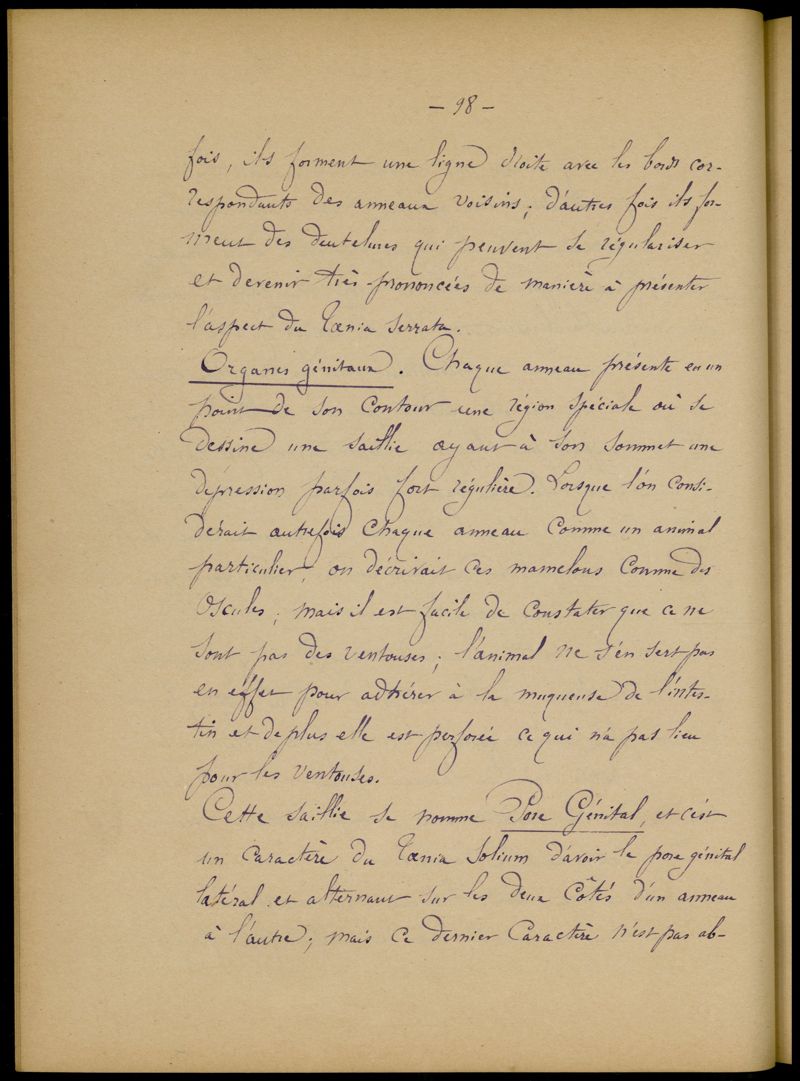 — 98 —
fois, ils forment une ligne droite avec les bords cor-
respondants des anneaux voisins; d'autres fois ils for-
ment des dentelures qui peuvent se régulariser
et devenir très-prononcées de manière à présenter
l'aspect du Tænia serrata.
Organes génitaux. Chaque anneau présente en un
point de son contour une région spéciale où se
dessine une saillie ayant à son sommet une
dépression parfois fort régulière. Lorsque l'on consi-
dérait autrefois chaque anneau comme un animal
particulier, on décrivait ces mamelons comme des
Oscules; mais il est facile de constater que ce ne
sont pas des ventouses; l'animal ne s'en sert pas
en effet pour adhérer à la muqueuse de l'intes-
tin et de plus elle est perforée ce qui n'a pas lieu
pour les ventouses.
Cette saillie se nomme Pore Génital, et c'est
un caractère du Tænia solium d'avoir le pore génital
latéral et alternant sur les deux côtés d'un anneau
à l'autre; mais ce dernier caractère n'est pas ab-